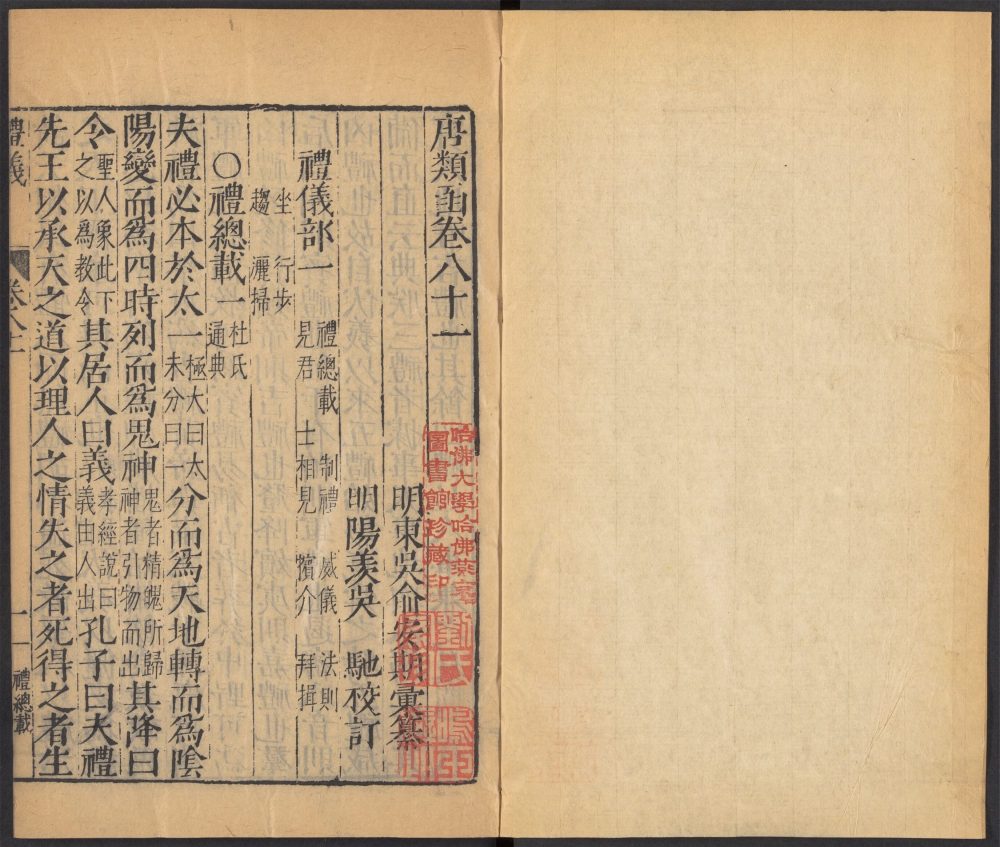 唐類函卷八十一
明東吳俞安期彙纂
明陽羨吳 馳校訂
禮儀部一 禮總載 制禮 威儀 法則
見君 士相見 儐介 拜揖
坐 行步
趨 灑掃
〇禮總載一 杜氏
通典
夫禮必本於太一極大曰太
未分曰一分而爲天地轉而爲陰
陽變而爲四時列而爲鬼神鬼者精魄所歸
神者引物而出其降曰
令聖人象此下
之以爲教令其居人曰義孝經說曰
義由人出孔子曰夫禮
先王以承天之道以理人之情失之者死得之者生
禮儀 卷八十一 一 禮總載
哈佛大學哈佛燕京
圖書館珍藏印